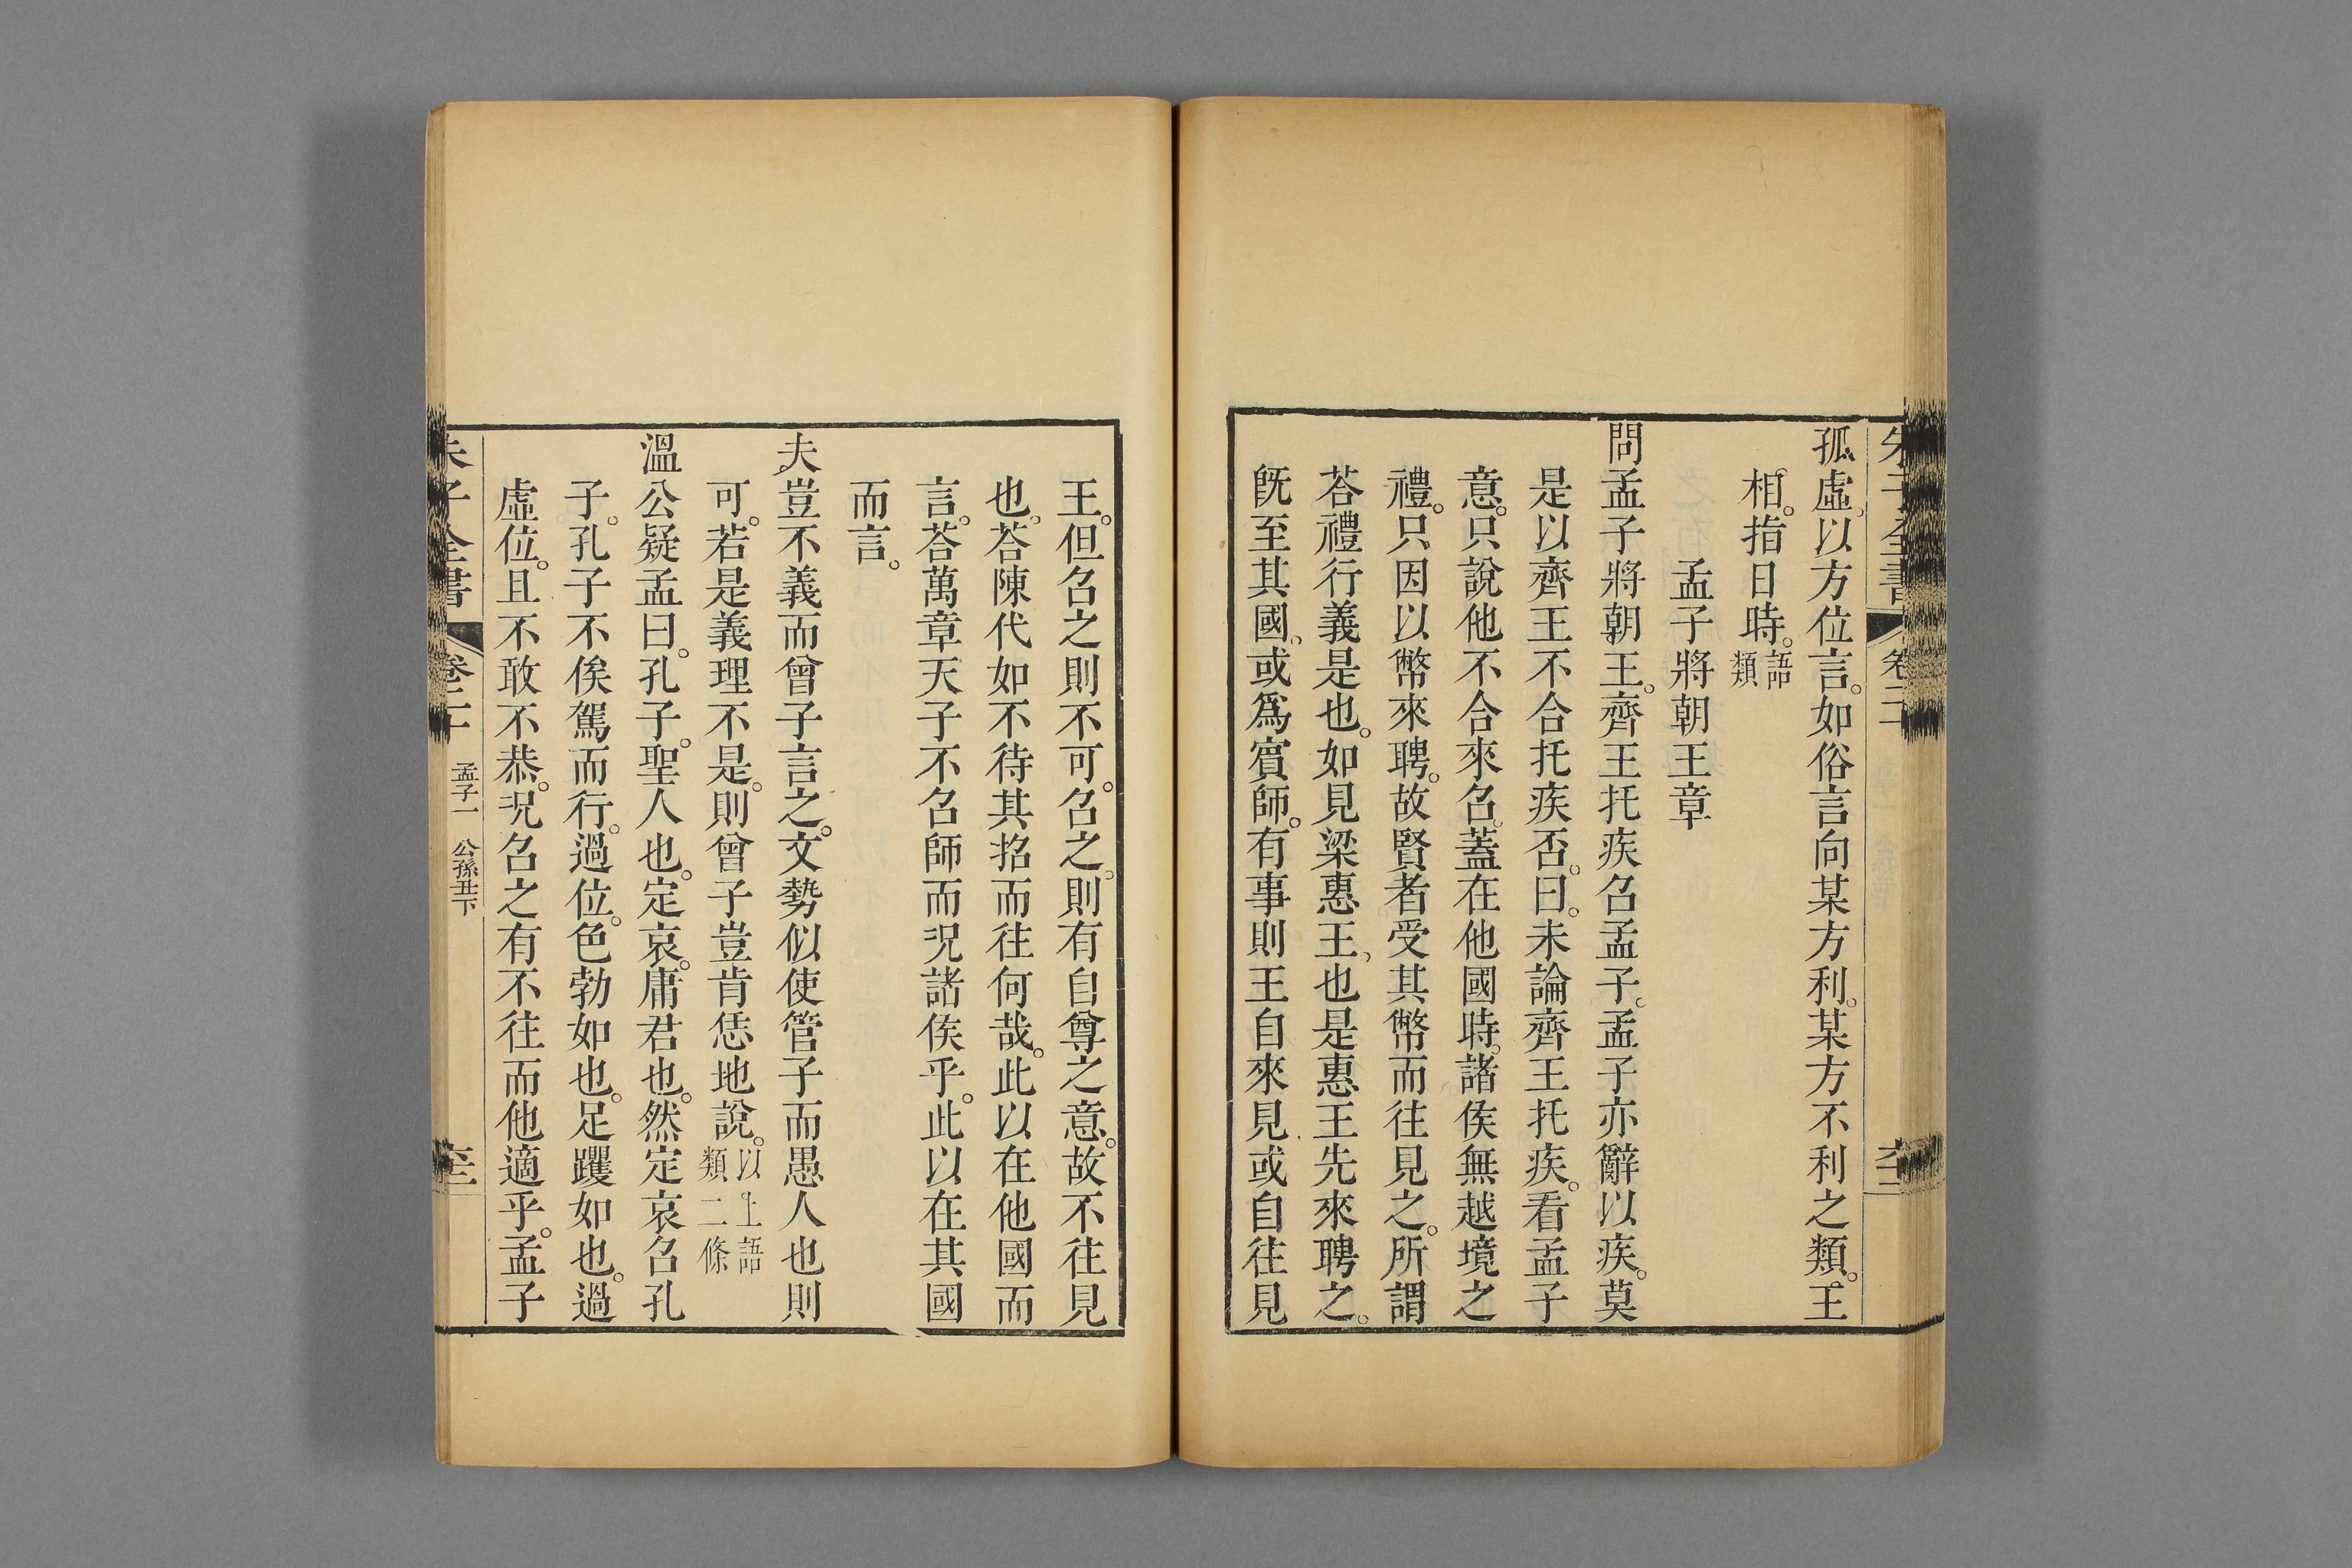 朱子全書 卷二十
孤虛以方位言。如俗言向某方利。某方不利之類。王
相。指日時。語類
孟子將朝王章
問孟子將朝王。齊王托疾召孟子。孟子亦辭以疾。莫
是以齊王不合托疾否。曰。未論齊王托疾。看孟子
意。只說他不合來召。蓋在他國時。諸侯無越境之
禮。只因以幣來聘。故賢者受其幣而往見之。所謂
荅禮行義是也。如見梁惠王、也是惠王先來聘之。
旣至其國、或爲賓師。有事則王自來見或自往見
王。但召之則不可。召之。則有自尊之意。故不往見
也。荅陳代如不待其招而往何哉。此以在他國而
言。荅萬章天子不召師而況諸侯乎。此以在其國
而言。
夫豈不義而曾子言之。文勢似使管子而愚人也則
可。若是義理不是。則曾子豈肯恁地說。以上語類二條
溫公疑孟曰。孔子。聖人也。定哀。庸君也。然定哀召孔
子。孔子不俟駕而行。過位。色勃如也。足躩如也。過
虛位。且不敢不恭。況召之有不往而他適乎。孟子
朱子全書 卷二十 孟子一 公孫丑下